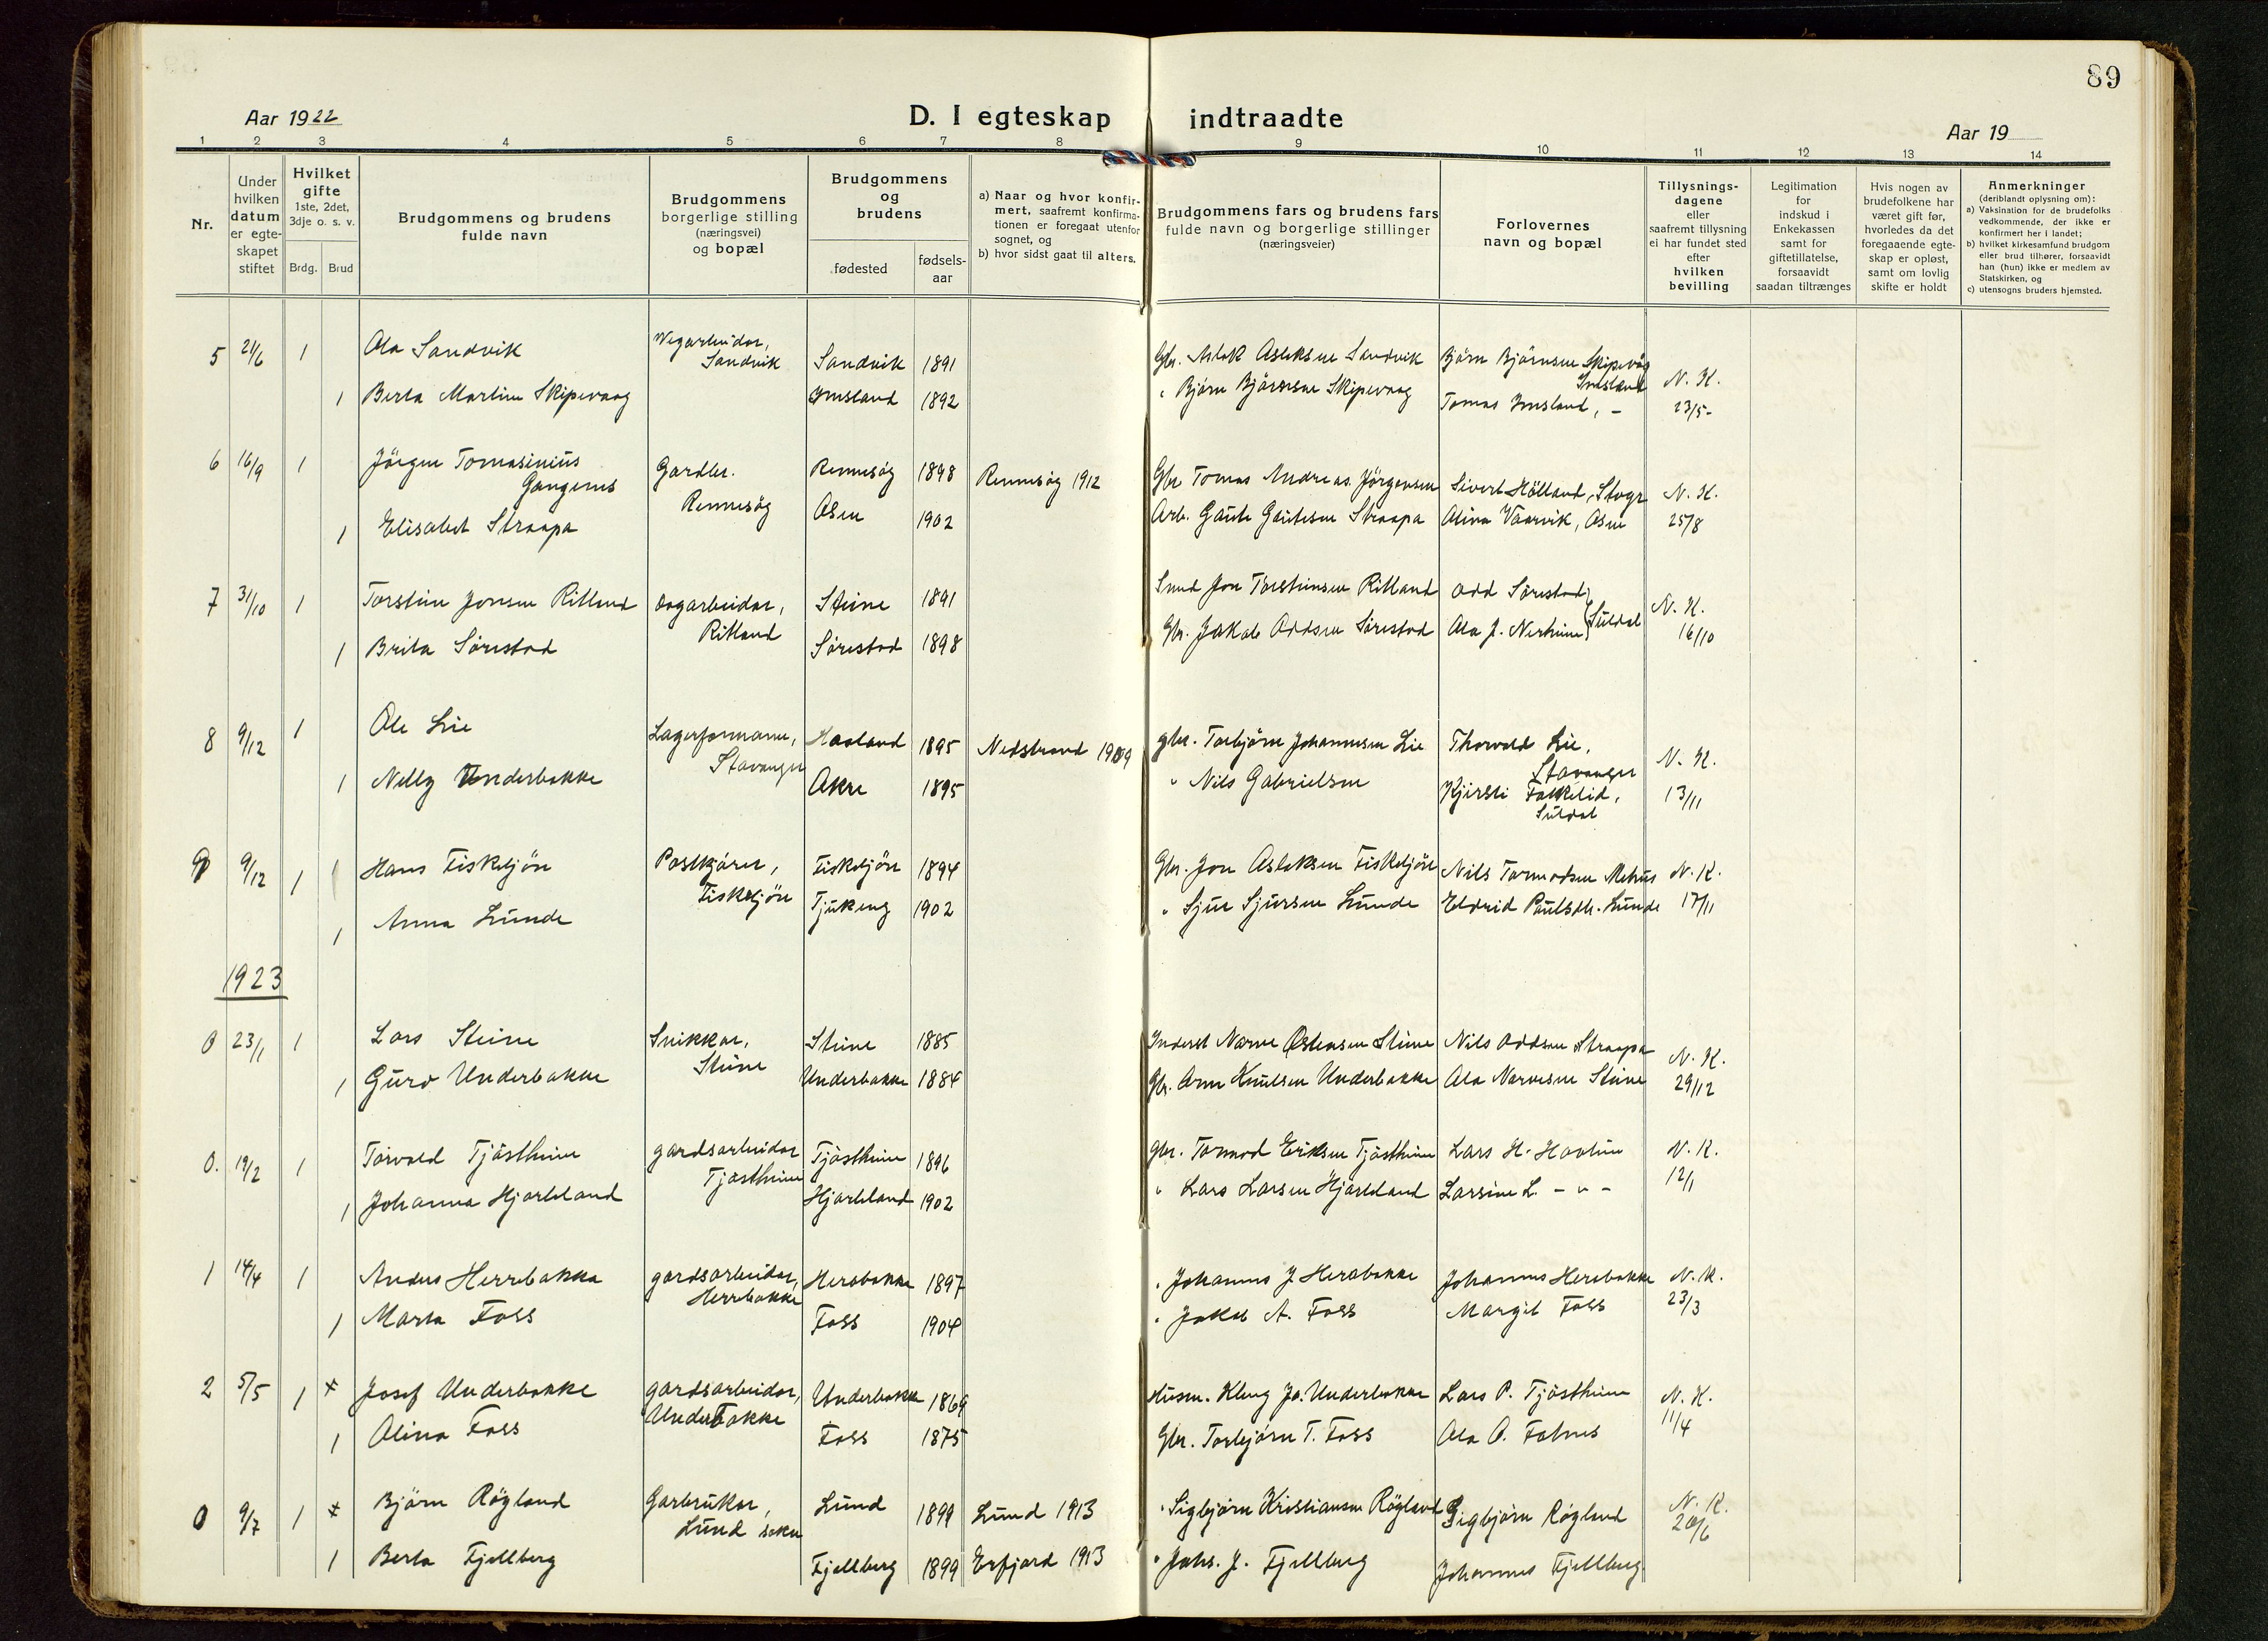 89
Aar 1922
D. I egteskap indtraadte
Aar 19
1 2 3 4 5 6 7 8 9 10 11 12 13 14
Nr.
Under hvilken datum er egteskapet stiftet
Hvilket gifte 1ste, 2det, 3dje o. s. v.
Brdg. Brud
Brudgommens og brudens fulde navn
Brudgommens borgerlige stilling (næringsvei) og bopæl
Brudgommens og brudens
fødested
fødselsaar
a) Naar og hvor konfirmert, saafremt konfirmationen er foregaat utenfor sognet, og
b) hvor sidst gaat til alters.
Brudgommens fars og brudens fars fulde navn og borgerlige stillinger (næringsveier)
Forlovernes navn og bopæl
Tillysningsdagene eller saafremt tillysning ei har fundet sted efter hvilken bevilling
Legitimation for indskud i Enkekassen samt for giftetillatelse, forsaavidt saadan tiltrænges
Hvis nogen av brudefolkene har været gift før, hvorledes da det foregaaende egteskap er opløst, samt om lovlig skifte er holdt
Anmerkninger (deriblandt oplysning om):
a) Vaksination for de brudefolks vedkommende, der ikke er konfirmert her i landet;
b) hvilket kirkesamfund brudgom eller brud tilhører, forsaavidt han (hun) ikke er medlem av Statskirken, og
c) utensogns bruders hjemsted.
5 21/6 1 Ola Sandvik Vegarbeidar, Sandvik Sandvik 1891 Gbr. Aslak Aslaksen Sandvik Bjørn Bjørnsen Skipevåg Imsland N. K.
1 Berta Martine Skipevaag Imsland 1892 " Bjørn Bjørnsen Skipevaag Tomas Imsland, - 23/5-
6 16/9 1 Jörgen Tomasinius Gangenes Gardbr. Rennesøy Rennesøy 1898 Rennesøy 1912 Gbr Tomas Andreas Jørgensen Sivert Hölland, Stvgr N. K.
1 Elisabet Straapa Osen 1902 Arb. Gaute Gautesen Straapa Alina Vaarvik, Osen 25/8
7 31/10 1 Torstein Jonsen Ritland Dagarbeidar, Ritland Steine 1891 Smed Jon Torsteinsen Ritland Odd Sørestad N. K.
1 Brita Sørestad Sørestad 1898 Gbr. Jakob Oddsen Sørestad Ola J. Nerheim Suldal 16/10
8 9/12 1 Ole Lie Lagerformann, Stavanger Haaland 1895 Nedstrand 1909 Gbr. Torbjørn Johannesen Lie Thorvald Lie, Stavanger N. K.
1 Nelly Underbakke Akre 1895 " Nils Gabrielsen Kjersti Falkelid, Suldal 13/11
9 9/12 1 1 Hans Fisketjön Postkjørar, Fisketjön Fisketjön 1894 Gbr. Jon Aslaksen Fisketjön Nils Tormodsen Mehus N. K.
1 Anna Lunde Tjukeng 1902 " Sjur Sjursen Lunde Eldrid Paulsdtr. Lunde 17/11
1923
0 23/1 1 Lars Steine Snikkar, Steine Steine 1885 Inderst Narve Østensen Steine Nils Oddsen Straapa N. K.
1 Guro Underbakke Underbakke 1884 Gbr. Arne Knutsen Underbakke Ola Narvesen Steine 29/12
0. 19/2 1 Torvald Tjøstheim gardsarbeidar Tjøstheim Tjøstheim 1896 Gbr. Tormod Eriksen Tjøstheim Lars H. Havlin N. K.
1 Johanna Hjorteland Hjorteland 1902 " Lars Larsen Hjorteland Larsine L. - " - 12/1
1 14/4 1 Anders Herrebakka gardsarbeidar, Herrebakke Herabakke 1897 " Johannes J. Herabakke Johannes Herabakke N. K.
1 Marta Foss Foss 1904 " Jakob A. Foss Margit Foss 23/3
2 5/5 1 + Josef Underbakke gardsarbeidar, Underbakke Underbakke 1869 Husm. Kleng Jo. Underbakke Lars P. Tjøstheim N. K.
1 Olina Foss Foss 1875 Gbr. Torbjørn T. Foss Ola O. Fatnes 11/4
0 9/7 1 + Bjørn Røgland Garbrukar, Lund sokn Lund 1899 Lund 1913 " Sigbjørn Kristiansen Røgland Sigbjørn Røgland N. K. 20/6
1 Berta Fjellberg Fjellberg 1899 Erfjord 1913 " Johs. J. Fjellberg Johannes Fjellberg